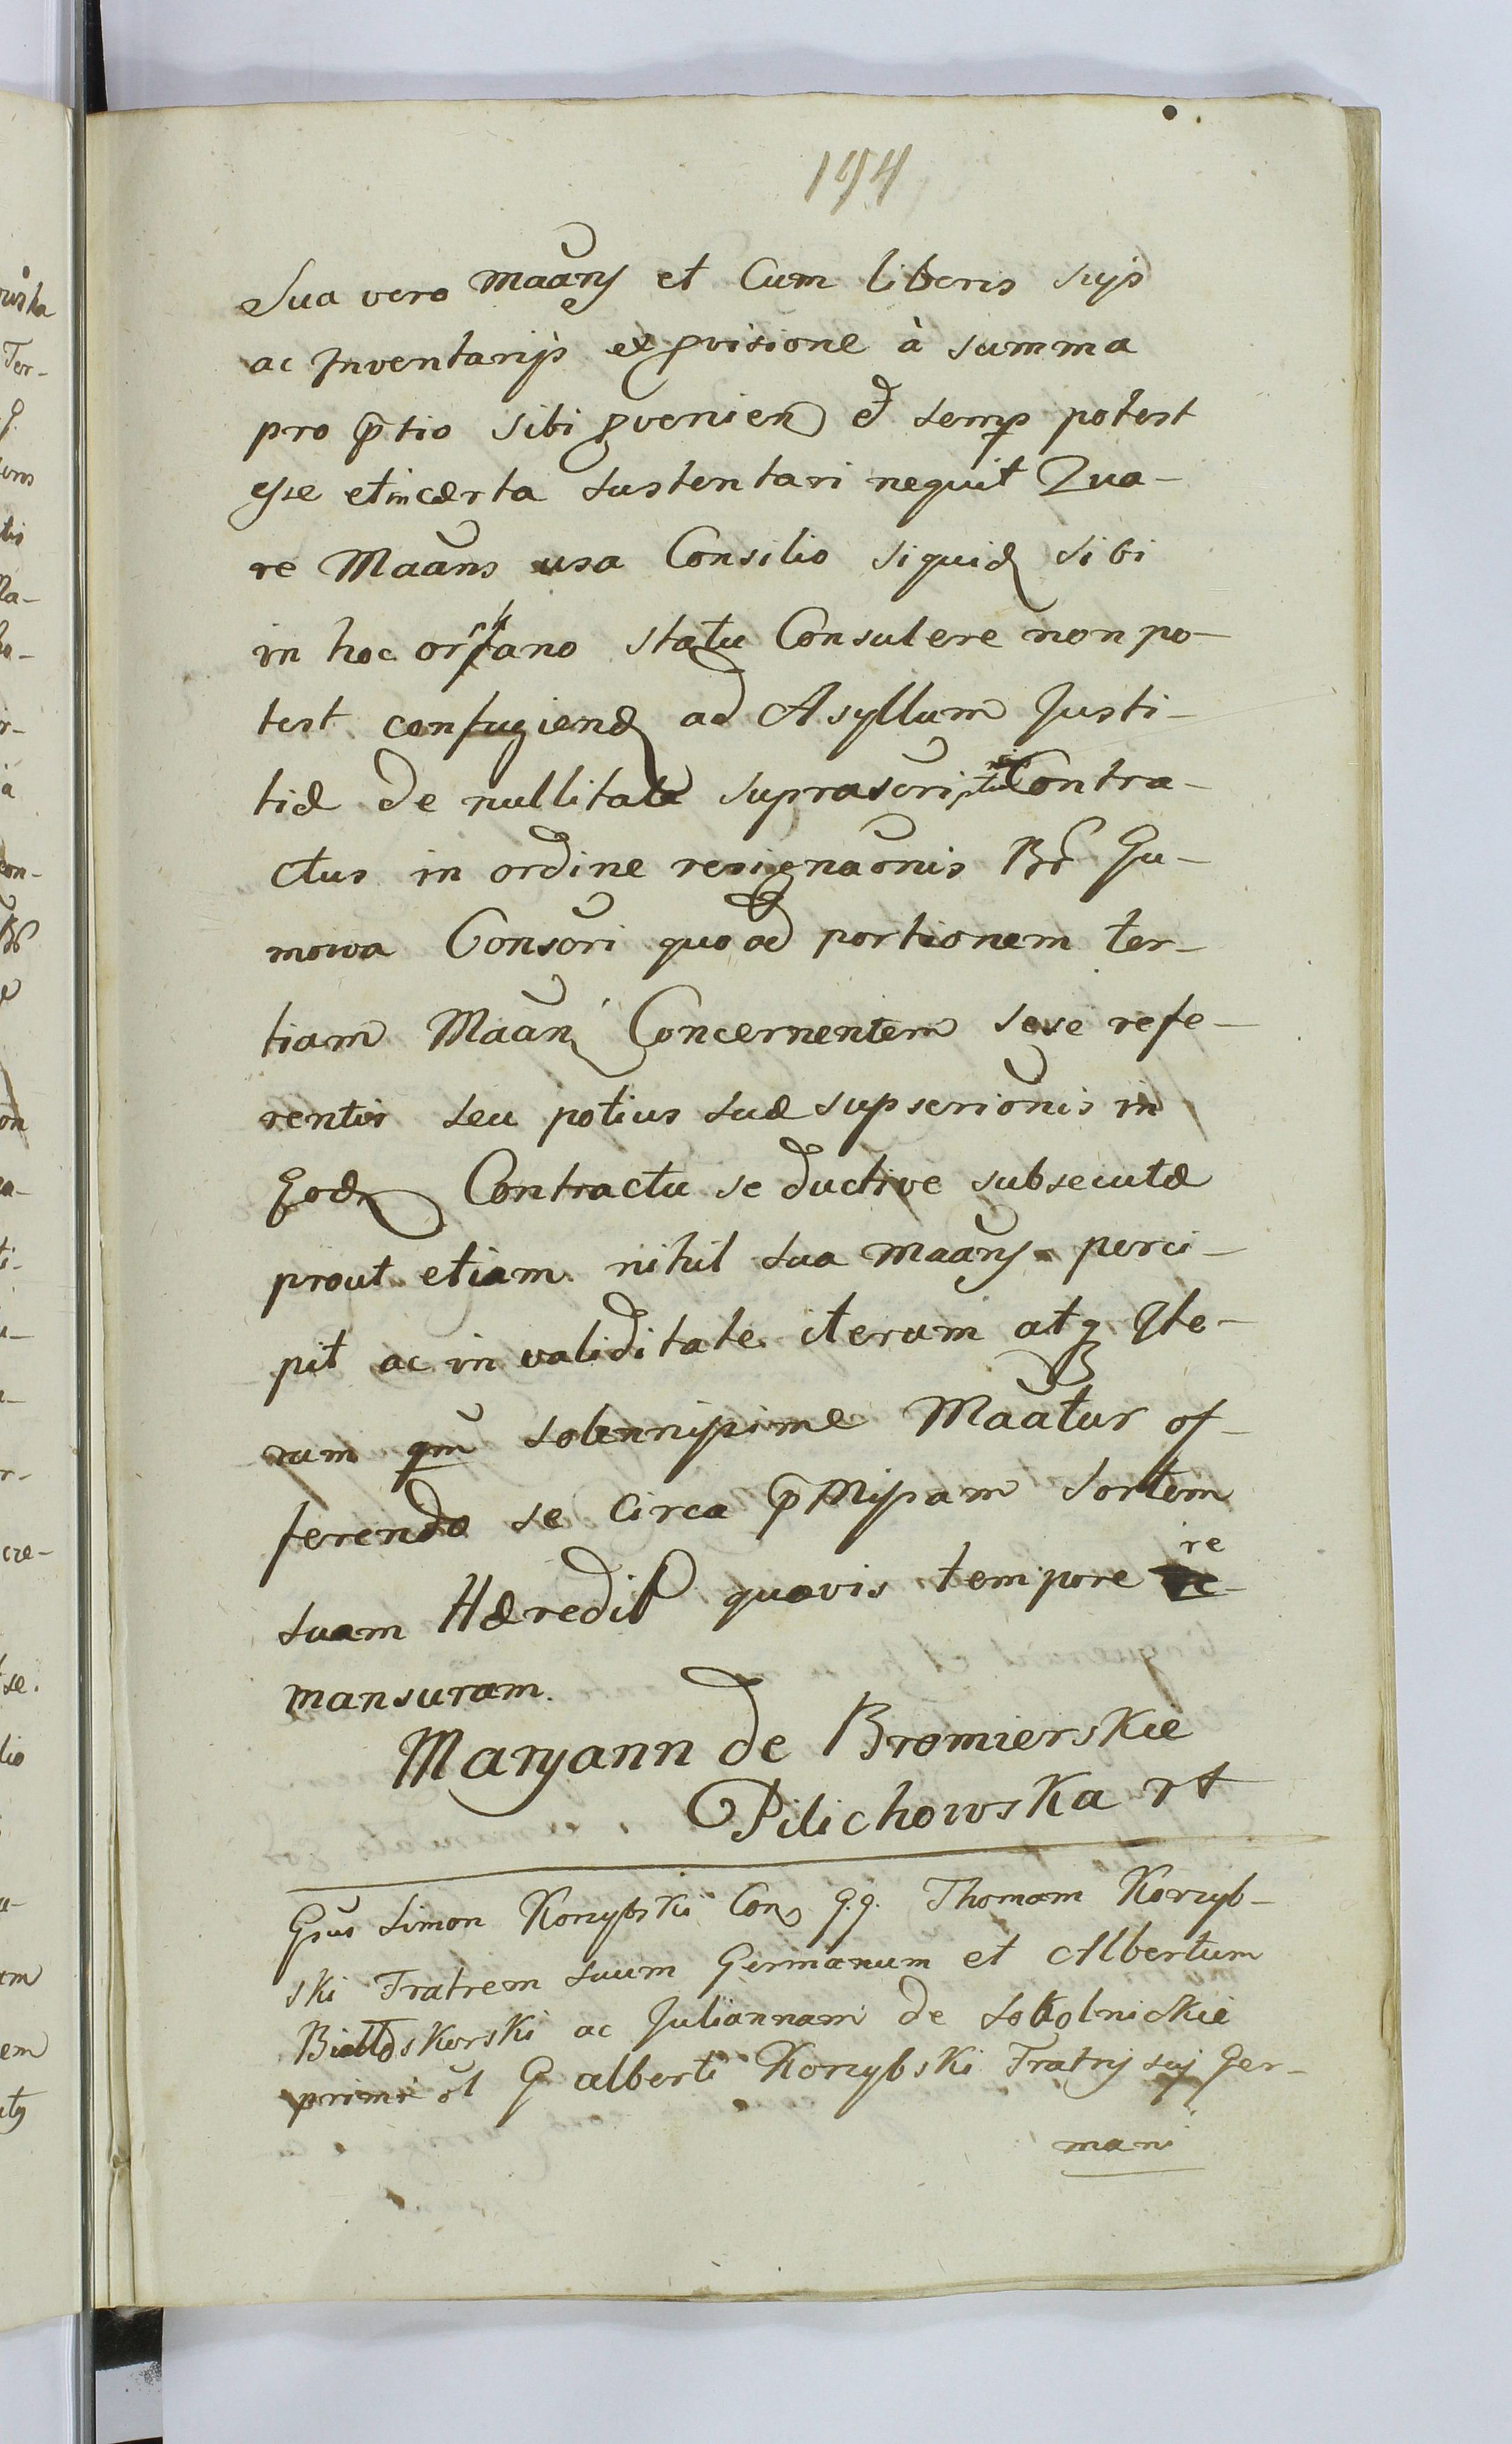 194
Sua vero maãns et Cum liberis suis
ac Inventarijs ex provisione à summa
pro p̃tio sibi pvenien sem̃p potest
esse et incerta sustentari nequit Qua-
re Maãns usa Consilio siquid sibi
in hoc orphano statu Consulere non po-
test confugiend ad Asyllum Justi-
tiæ de nullitate suprascripti Contra-
ctus in ordine resignaõnis Br Gu-
mowa Conscri quoad portionem ter-
tiam Maañ Concernentem sese refe-
rentis seu potius suæ supscriõnis in
Eodem Contractu seductive subsecutæ
prout etiam nihil sua maãns perci-
pit ac in validitate iterum atq Ite-
rum qm̃ solennissime Maãtur of-
ferendo se Circa p̃missam Sortem
suam Hæredit quovis tempore re
mansuram.
Maryann de Bromierskie
Pilichowska rt
Gsus Simon Korzybski Con G.G. Thomam Korzyb-
ski Fratrem suum Germanum et Albertum
Białoskorski ac Juliannam de Sokolnickie
primi õl G alberti Korzybski Fratris sui Ger-
mani